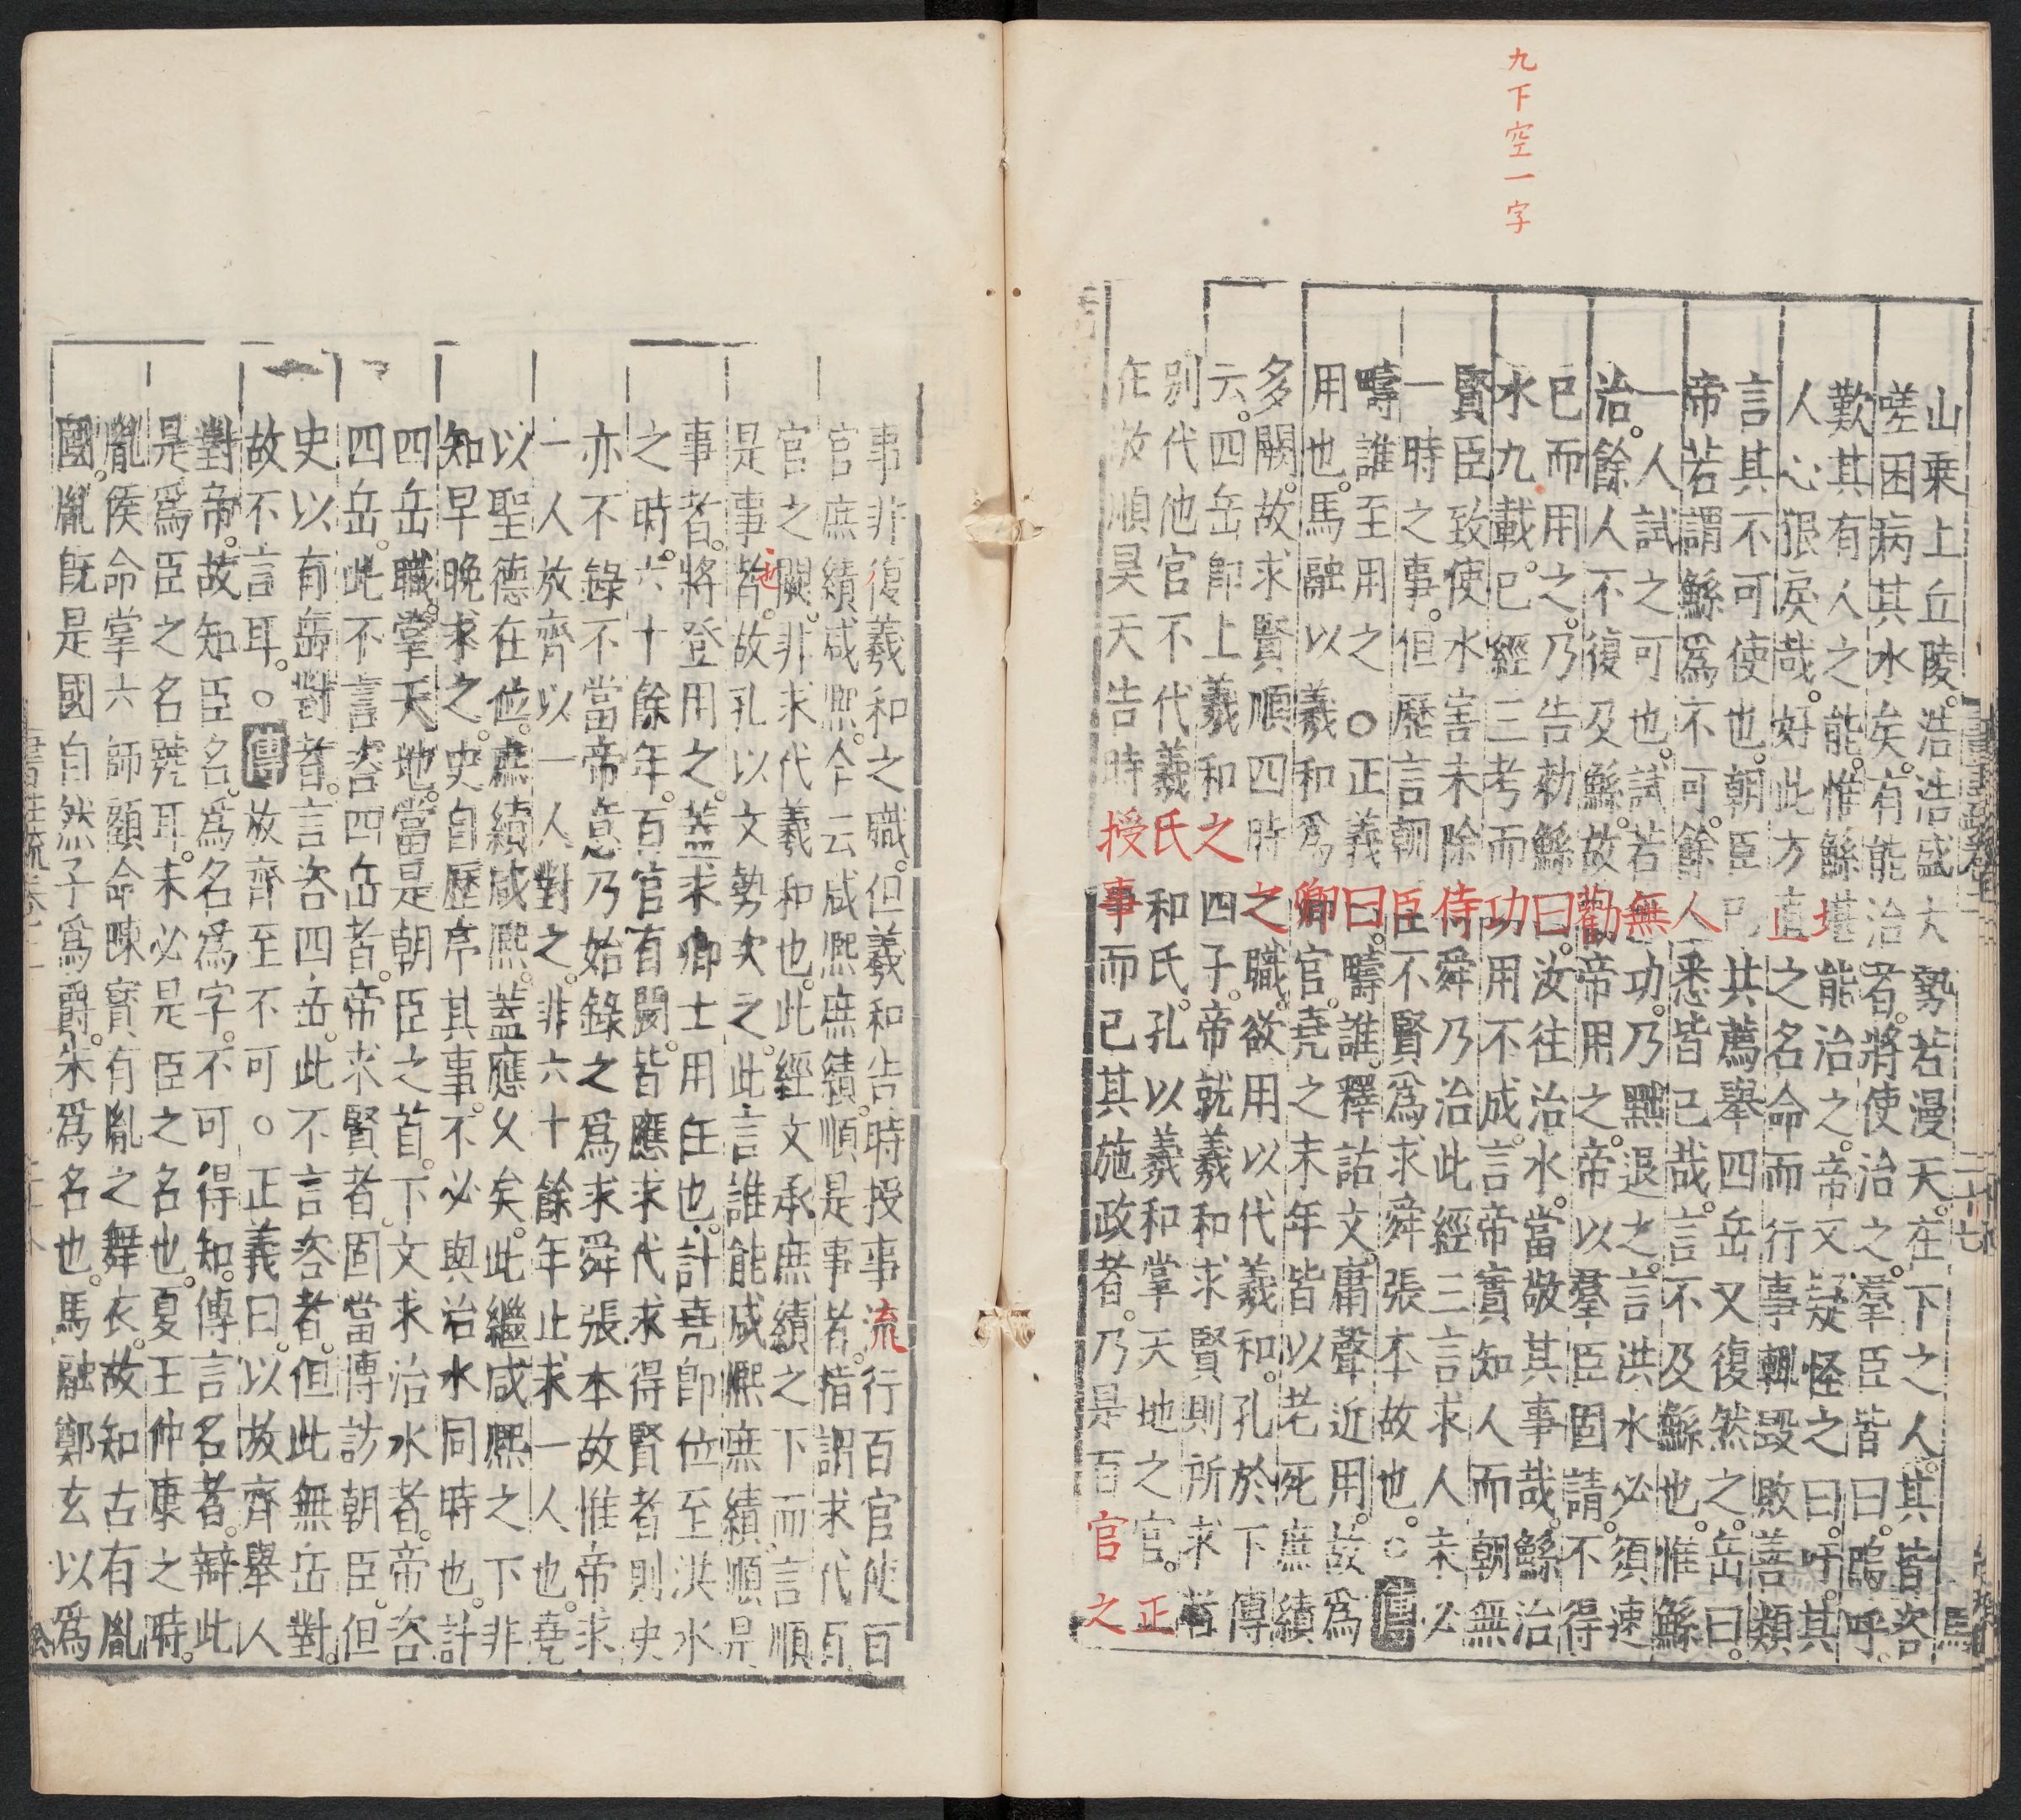 九下空一字
山乘上丘陵。浩浩盛大勢若漫天。在下之人。其皆咨
嗟困病其水矣。有能治者。將使治之。羣臣皆曰。嗚呼。
歎其有人之能。惟鯀堪能治之。帝又疑怪之曰。吁。其
人心狠戾哉。好此方直之名。命而行事輒毀敗善類。
言其不可使也。朝臣已共薦舉。四岳又復然之。岳曰。
帝若謂鯀爲不可。餘人悉皆已哉。言不及鯀也。惟鯀
一人試之可也。試若無功。乃黜退之。言洪水必須速
治。餘人不復及鯀。故勸帝用之。帝以羣臣固請。不得
已而用之。乃告勑鯀曰。汝往治水。當敬其事哉。鯀治
水九載。已經三考而功用不成。言帝實知人而朝無
賢臣。致使水害未除。待舜乃治。此經三言求人未必
一時之事。但歷言朝臣不賢。爲求舜張本故也。○傳
疇誰至用之○正義曰。疇誰。釋詁文。庸聲近用。故爲
用也。馬融以羲和爲卿官。堯之末年皆以老死。庶績
多闕。故求賢順四時之職。欲用以代羲和。孔於下傳
云。四岳卽上羲和之四子。帝就羲和求賢則所求者
別代他官不代羲氏和氏。孔以羲和掌天地之官。正
在敬順昊天告時授事而已其施政者。乃是百官之
事非復羲和之職。但羲和告時授事流行百官使百
官庶績咸熙。今云咸熙庶績。順是事者。指謂求代百
官之闕。非求代羲和也。此經文承庶績之下而言順
是事者。故孔以文勢次之。此言誰能咸熙庶績。順是
事者。將登用之。蓋求卿士用任也。計堯卽位至洪水
之時。六十餘年。百官有闕。皆應求代。求得賢者則史
亦不錄。不當帝意乃始錄之爲求舜張本故惟帝求
一人放齊以一人對之。非六十餘年止求一人也。堯
以聖德在位。庶績咸熙。蓋應久矣。此繼咸熙之下非
知早晚求之。史自歷序其事。不必與治水同時也。計
四岳職掌天地。當是朝臣之首。下文求治水者。帝咨
四岳。此不言咨四岳者。帝求賢者固當博訪朝臣。但
史以有岳對者。言咨四岳。此不言咨者。但此無岳對。
故不言耳。○傳放齊至不可。○正義曰。以放齊舉人
對帝。故知臣名。爲名爲字。不可得知。傳言名者。辯此
是爲臣之名號耳。未必是臣之名也。夏王仲康之時。
胤侯命掌六師。顧命陳寶有胤之舞衣。故知古有胤
國。胤旣是國。自然子爲爵。朱爲名也。馬融鄭玄以爲